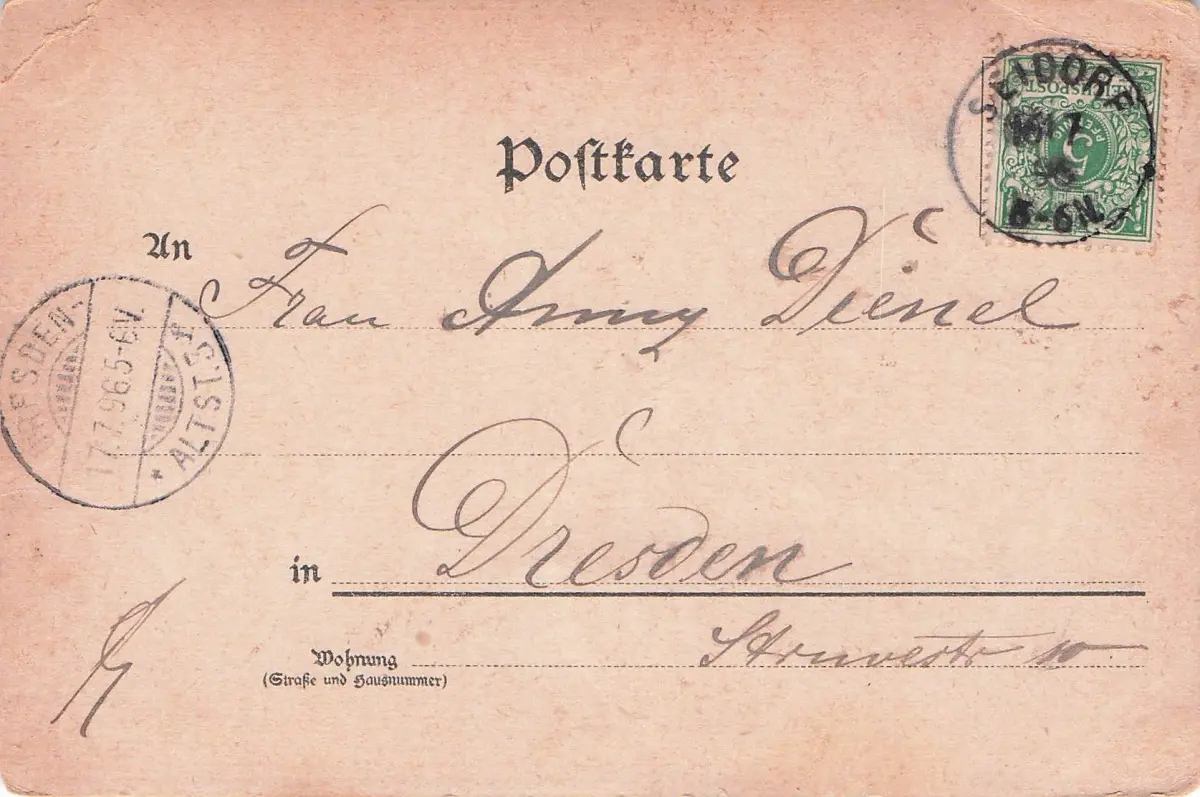 Postkarte
SEIDORF
16 7
96
5-6N.
REICHSPOST
5
PFENNIG
An
Frau Anny Dienel
DRESDEN-
ALTST. 1.
17.7.96.5-6V.
in Dresden
Wohnung Struvestr 10.
(Straße und Hausnummer)